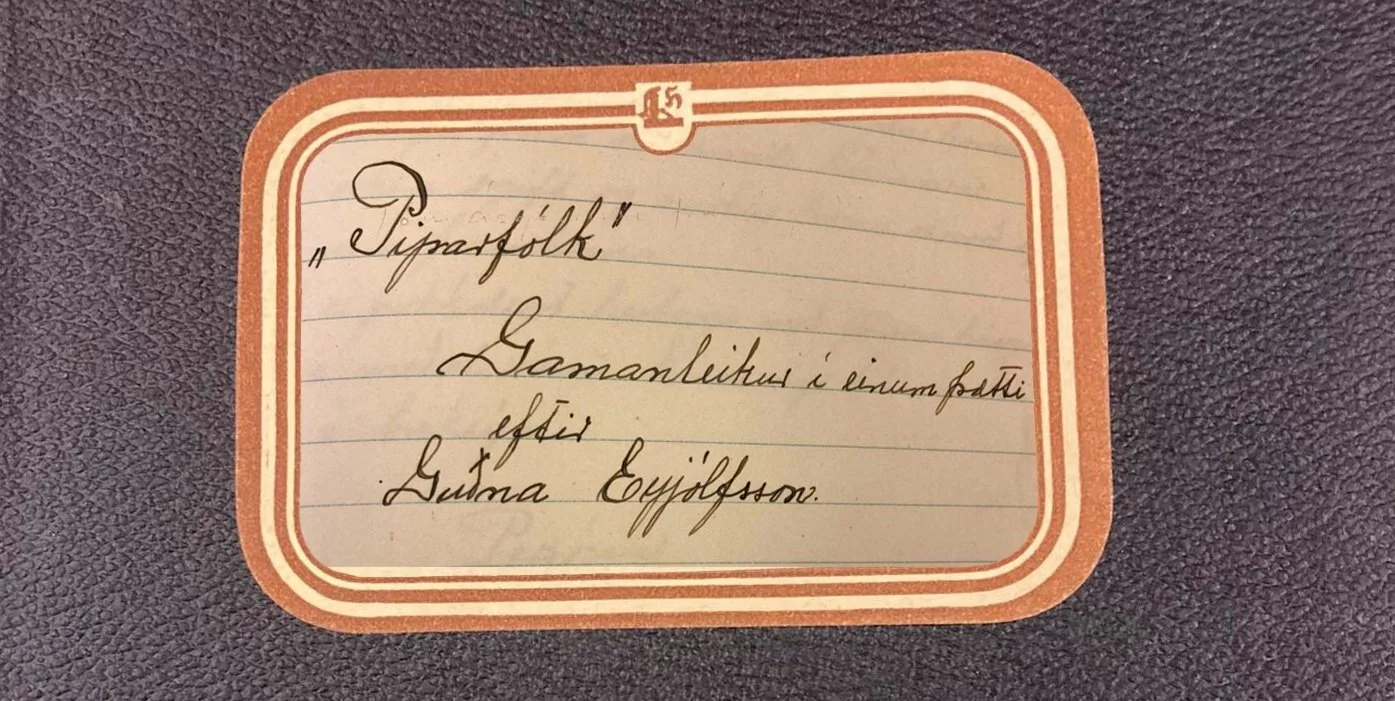 „Piparfólk"
Gamanleikur í einum þætti
eftir
Guðna Eyjólfsson.